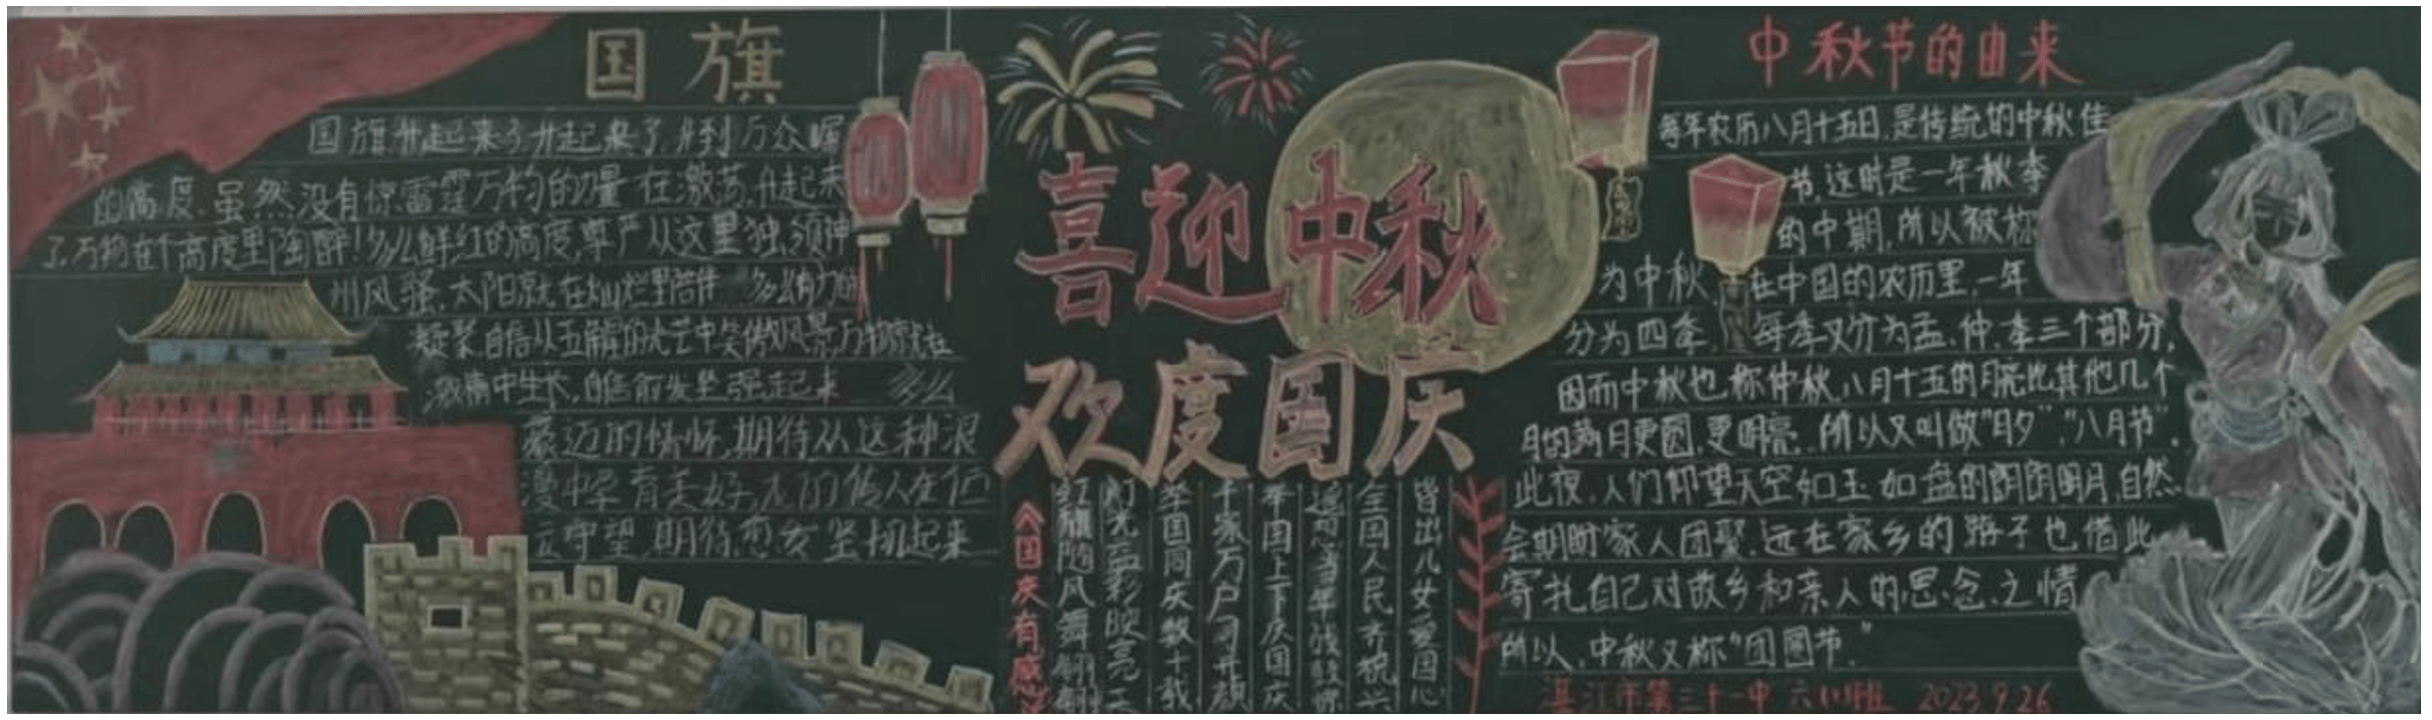 国旗
国旗升起来了,升起来了,升到万众瞩
的高度.虽然没有惊雷霆万钧的力量在激荡,升起来
了,万物在个高度里陶醉!多么鲜红的高度,尊严从这里独领神
州风骚.太阳就在灿烂里 多么有力的
凝聚.自信从五角的光芒中笑傲风景,万物就在
激情中生长,自信前发坚强起来 多么
豪迈的情怀,期待从这种浪
漫中孕育美好,龙的传人在伫
立守望,期待 坚 起来
喜迎中秋
欢度国庆
《国庆有感》
红旗随风舞翩翩
灯光异彩映亮天
举国同庆数十载
千家万户同开颜
举国上下庆国庆
遥想当年战鼓
全国人民齐祝兴
皆出儿女爱国心
中秋节的由来
每年农历八月十五日,是传统的中秋佳
节.这时是一年秋季
的中期,所以被称
为中秋 在中国的农历里,一年
分为四季, 每季又分为孟.仲.季三个部分,
因而中秋也称仲秋,八月十五的月亮比其他几个
月的满月更圆,更明亮,所以又叫做"月夕","八月节".
此夜,人们仰望天空如玉如盘的朗朗明月,自然
会期盼家人团聚.远在家乡的游子也借此
寄托自己对故乡和亲人的思念之情
所以,中秋又称"团圆节."
湛江市第三十一中 六(1)班 2023.9.26